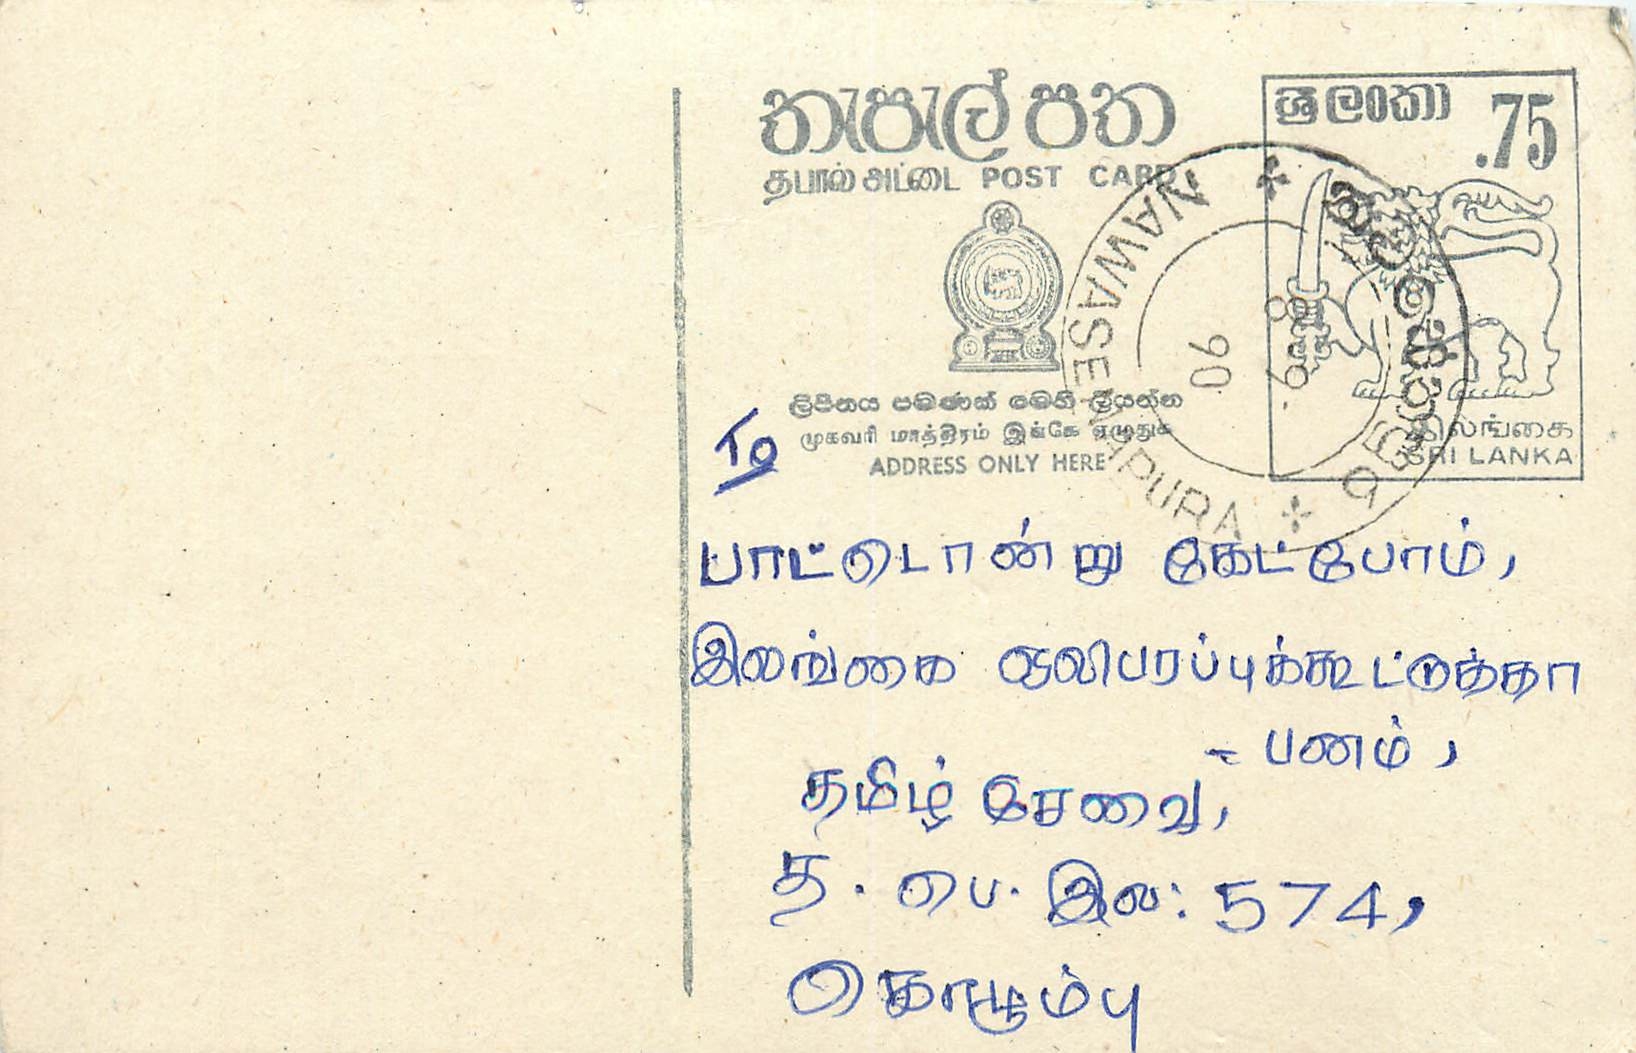 තැපැල් පත
தபால் அட்டை POST CARD
ශ්‍රී ලංකා .75
NAWASENAPURA
8 9
90
ලිපිනය පමණක් මෙහි ලියන්න
முகவரி மாத்திரம் இங்கே எழுதுக
ADDRESS ONLY HERE
இலங்கை
SRI LANKA
To
பாட்டொன்று கேட்போம்,
இலங்கை ஒலிபரப்புக்கூட்டுத்தா
- பனம்,
தமிழ் சேவை,
த. பெ. இல: 574,
கொழும்பு